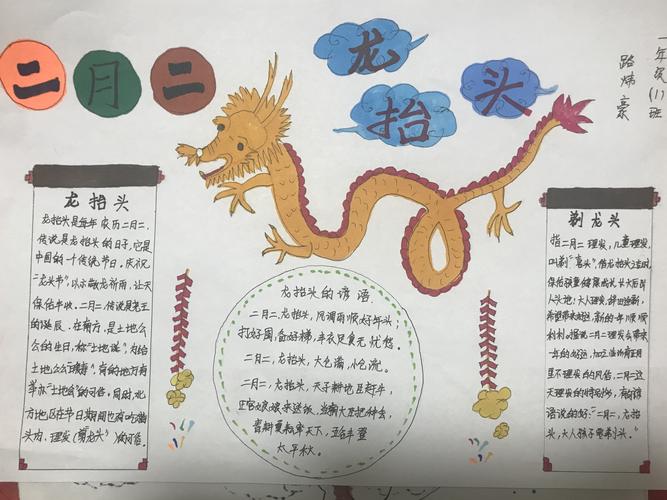 二月二
龙抬头
一年级(1)班
路炜豪
龙抬头
龙抬头是每年农历二月二,
传说是龙抬头的日子,它是
中国的一个传统节日。庆祝
“龙头节”,以示敬龙祈雨,让天
保佑丰收。二月二,传说是尧王
的诞辰。在南方,是土地公
公的生日,称“土地诞”,为给
土地公公“暖寿”,有的地方有
举办“土地会”的习俗。同时,北
方地区在节日期间也有吃猪
头肉、理发(剃龙头)的习俗。
龙抬头的谚语
二月二,龙抬头,风调雨顺好年头;
打好囤,备好梯,丰衣足食无忧愁。
二月二,龙抬头,大仓满,小仓流。
二月二,龙抬头,天子耕地臣赶牛,
正宫娘娘来送饭,当朝大臣把种丢,
春耕夏耘率天下,五谷丰登
太平秋。
剃龙头
指二月二理发,儿童理发,
叫剃“喜头”,借龙抬头之吉时,
保佑孩童健康成长,长大后出
人头地;大人理发,辞旧迎新,
希望带来好运,新的一年顺顺
利利。据说二月二理发会带来
一年的好运,加之临沂有正月
里不理发的风俗,二月二这
天理发的特别多,有句谚
语说的好:“二月二,龙抬
头,大人孩子要剃头。”